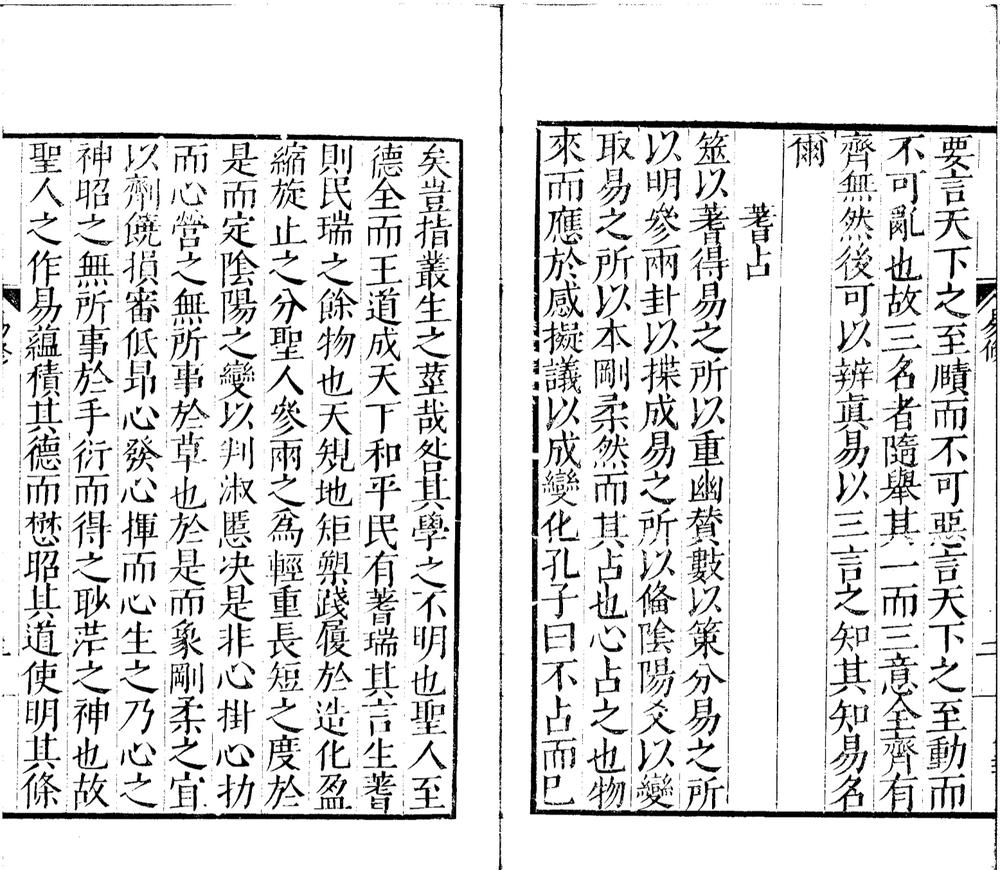 要言天下之至賾而不可惡言天下之至動而
不可亂也故三名者隨舉其一而三意全齊有
齊無然後可以辨眞易以三言之知其知易名
爾
蓍占
筮以蓍得易之所以重幽賛數以策分易之所
以明參兩卦以揲成易之所以俻陰陽爻以變
取易之所以本剛柔然而其占也心占之也物
來而應於感擬議以成變化孔子曰不占而巳
矣豈指叢生之莖哉咎其學之不明也聖人至
德全而王道成天下和平民有蓍瑞其言生蓍
則民瑞之餘物也天規地矩槼踐履於造化盈
縮旋止之分聖人參兩之爲輕重長短之度於
是而定陰陽之變以判淑慝决是非心掛心扐
而心營之無所事於草也於是而象剛柔之宜
以劑饒損審低昂心發心揮而心生之乃心之
神昭之無所事於手衍而得之眇茫之神也故
聖人之作易蘊積其德而懋昭其道使明其條